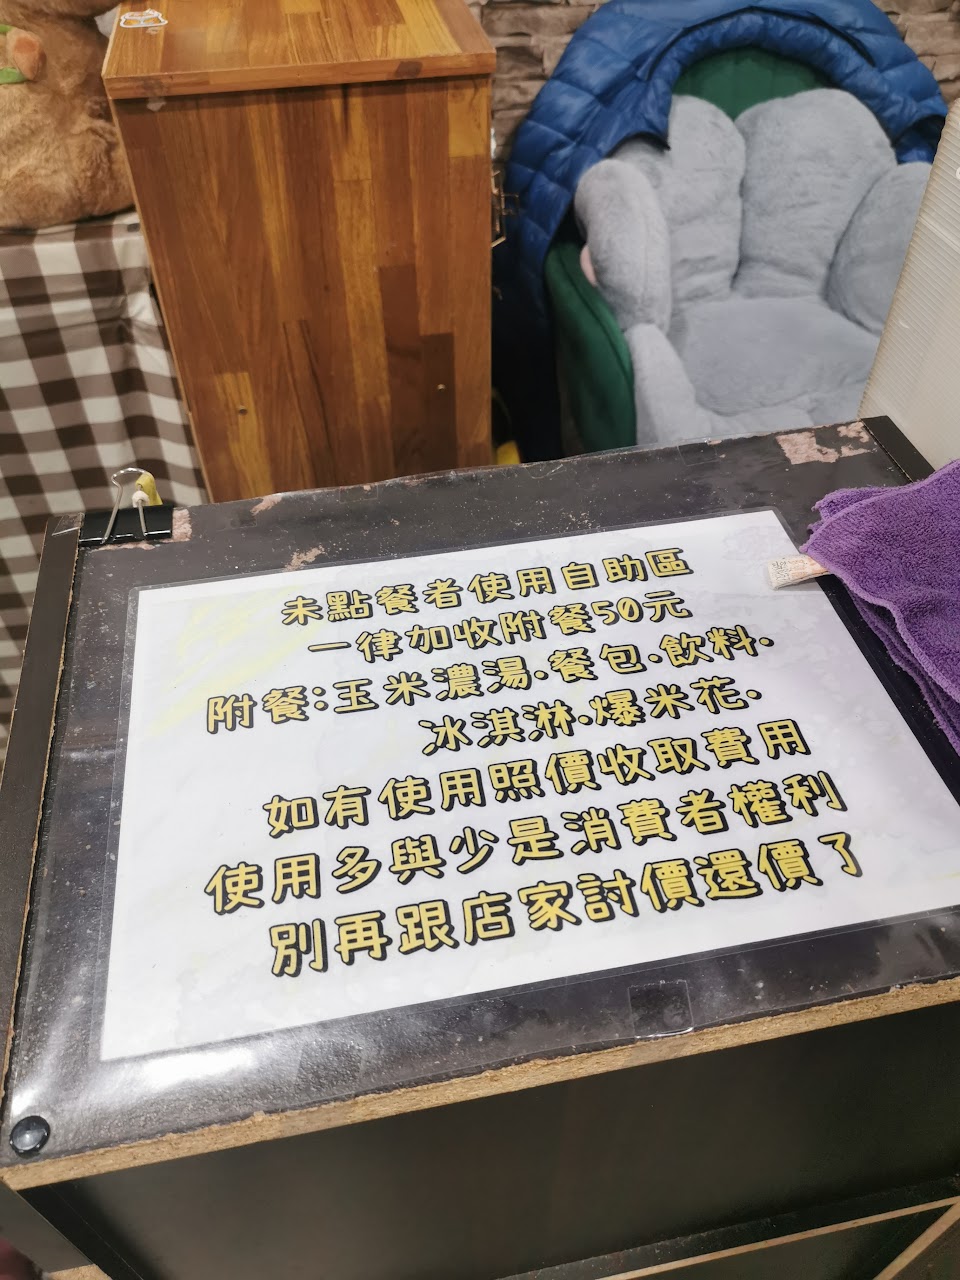 未點餐者使用自助區
一律加收附餐50元
附餐:玉米濃湯.餐包.飲料.
冰淇淋.爆米花.
如有使用照價收取費用
使用多與少是消費者權利
別再跟店家討價還價了